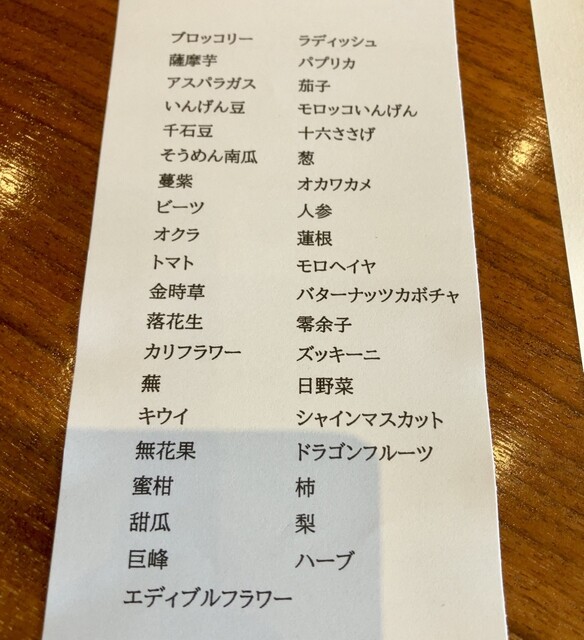 ブロッコリー ラディッシュ
薩摩芋 パプリカ
アスパラガス 茄子
いんげん豆 モロッコいんげん
千石豆 十六ささげ
そうめん南瓜 葱
蔓紫 オカワカメ
ビーツ 人参
オクラ 蓮根
トマト モロヘイヤ
金時草 バターナッツカボチャ
落花生 零余子
カリフラワー ズッキーニ
蕪 日野菜
キウイ シャインマスカット
無花果 ドラゴンフルーツ
蜜柑 柿
甜瓜 梨
巨峰 ハーブ
エディブルフラワー